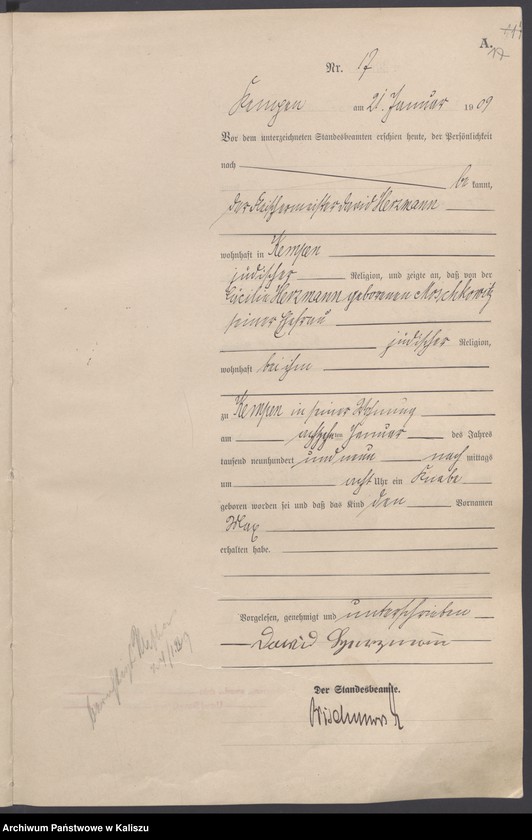 A.
17
Nr. 17
Kempen am 21. Januar 1909
Vor dem unterzeichneten Standesbeamten erschien heute, der Persönlichkeit
nach
be kannt,
der Fleischermeister David Herzmann
wohnhaft in Kempen
jüdischer Religion, und zeigte an, daß von der
Cäcilie Herzmann geborenen Moschkowitz
seiner Ehefrau
jüdischer Religion,
wohnhaft bei ihm
zu Kempen in seiner Wohnung
am achtzehnten Januar des Jahres
tausend neunhundert und neun nach mittags
um acht Uhr ein Knabe
geboren worden sei und daß das Kind den Vornamen
Max
erhalten habe.
Vorgelesen, genehmigt und unterschrieben
David Herzmann
Der Standesbeamte.
Archiwum Państwowe w Kaliszu